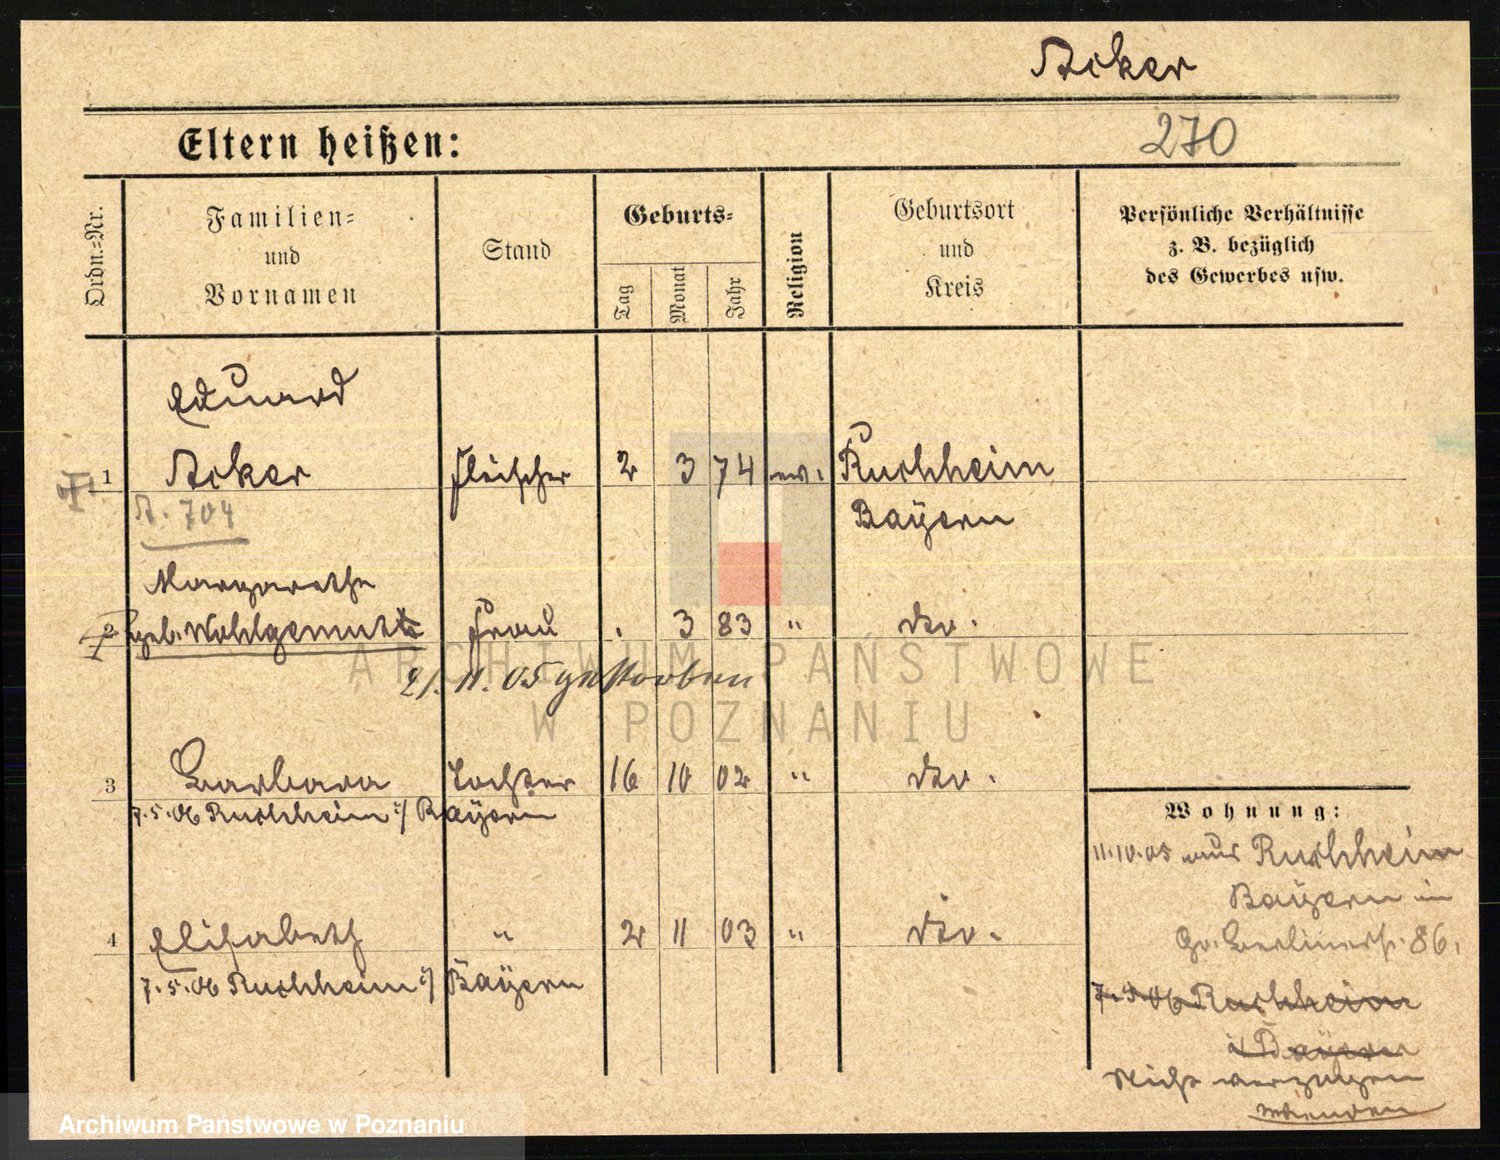 Acker
Eltern heißen:
270
Ordn.=Nr.
Familien=
und
Vornamen
Stand
Geburts=
Tag
Monat
Jahr
Religion
Geburtsort
und
Kreis
Persönliche Verhältnisse
z. B. bezüglich
des Gewerbes usw.
Eduard
1 Acker Fleischer 2 3 74 ev. Ruchheim
A. 704 Bayern
Margarethe
2 geb. Wohlgemuth Frau . 3 83 " dto.
21. 11. 05 gestorben
3 Barbara Tochter 16 10 02 " dto.
7.5.06 Ruchheim i/ Bayern
4 Elisabeth " 2 11 03 " dto.
7.5.06 Ruchheim i/ Bayern
Wohnung:
11.10.05 aus Ruchheim
Bayern in
Gr. Berlinerstr. 86.
7.5.06 Ruchheim
i/ Bayern
Nicht verzogen
ARCHIWUM PAŃSTWOWE
W POZNANIU
Archiwum Państwowe w Poznaniu